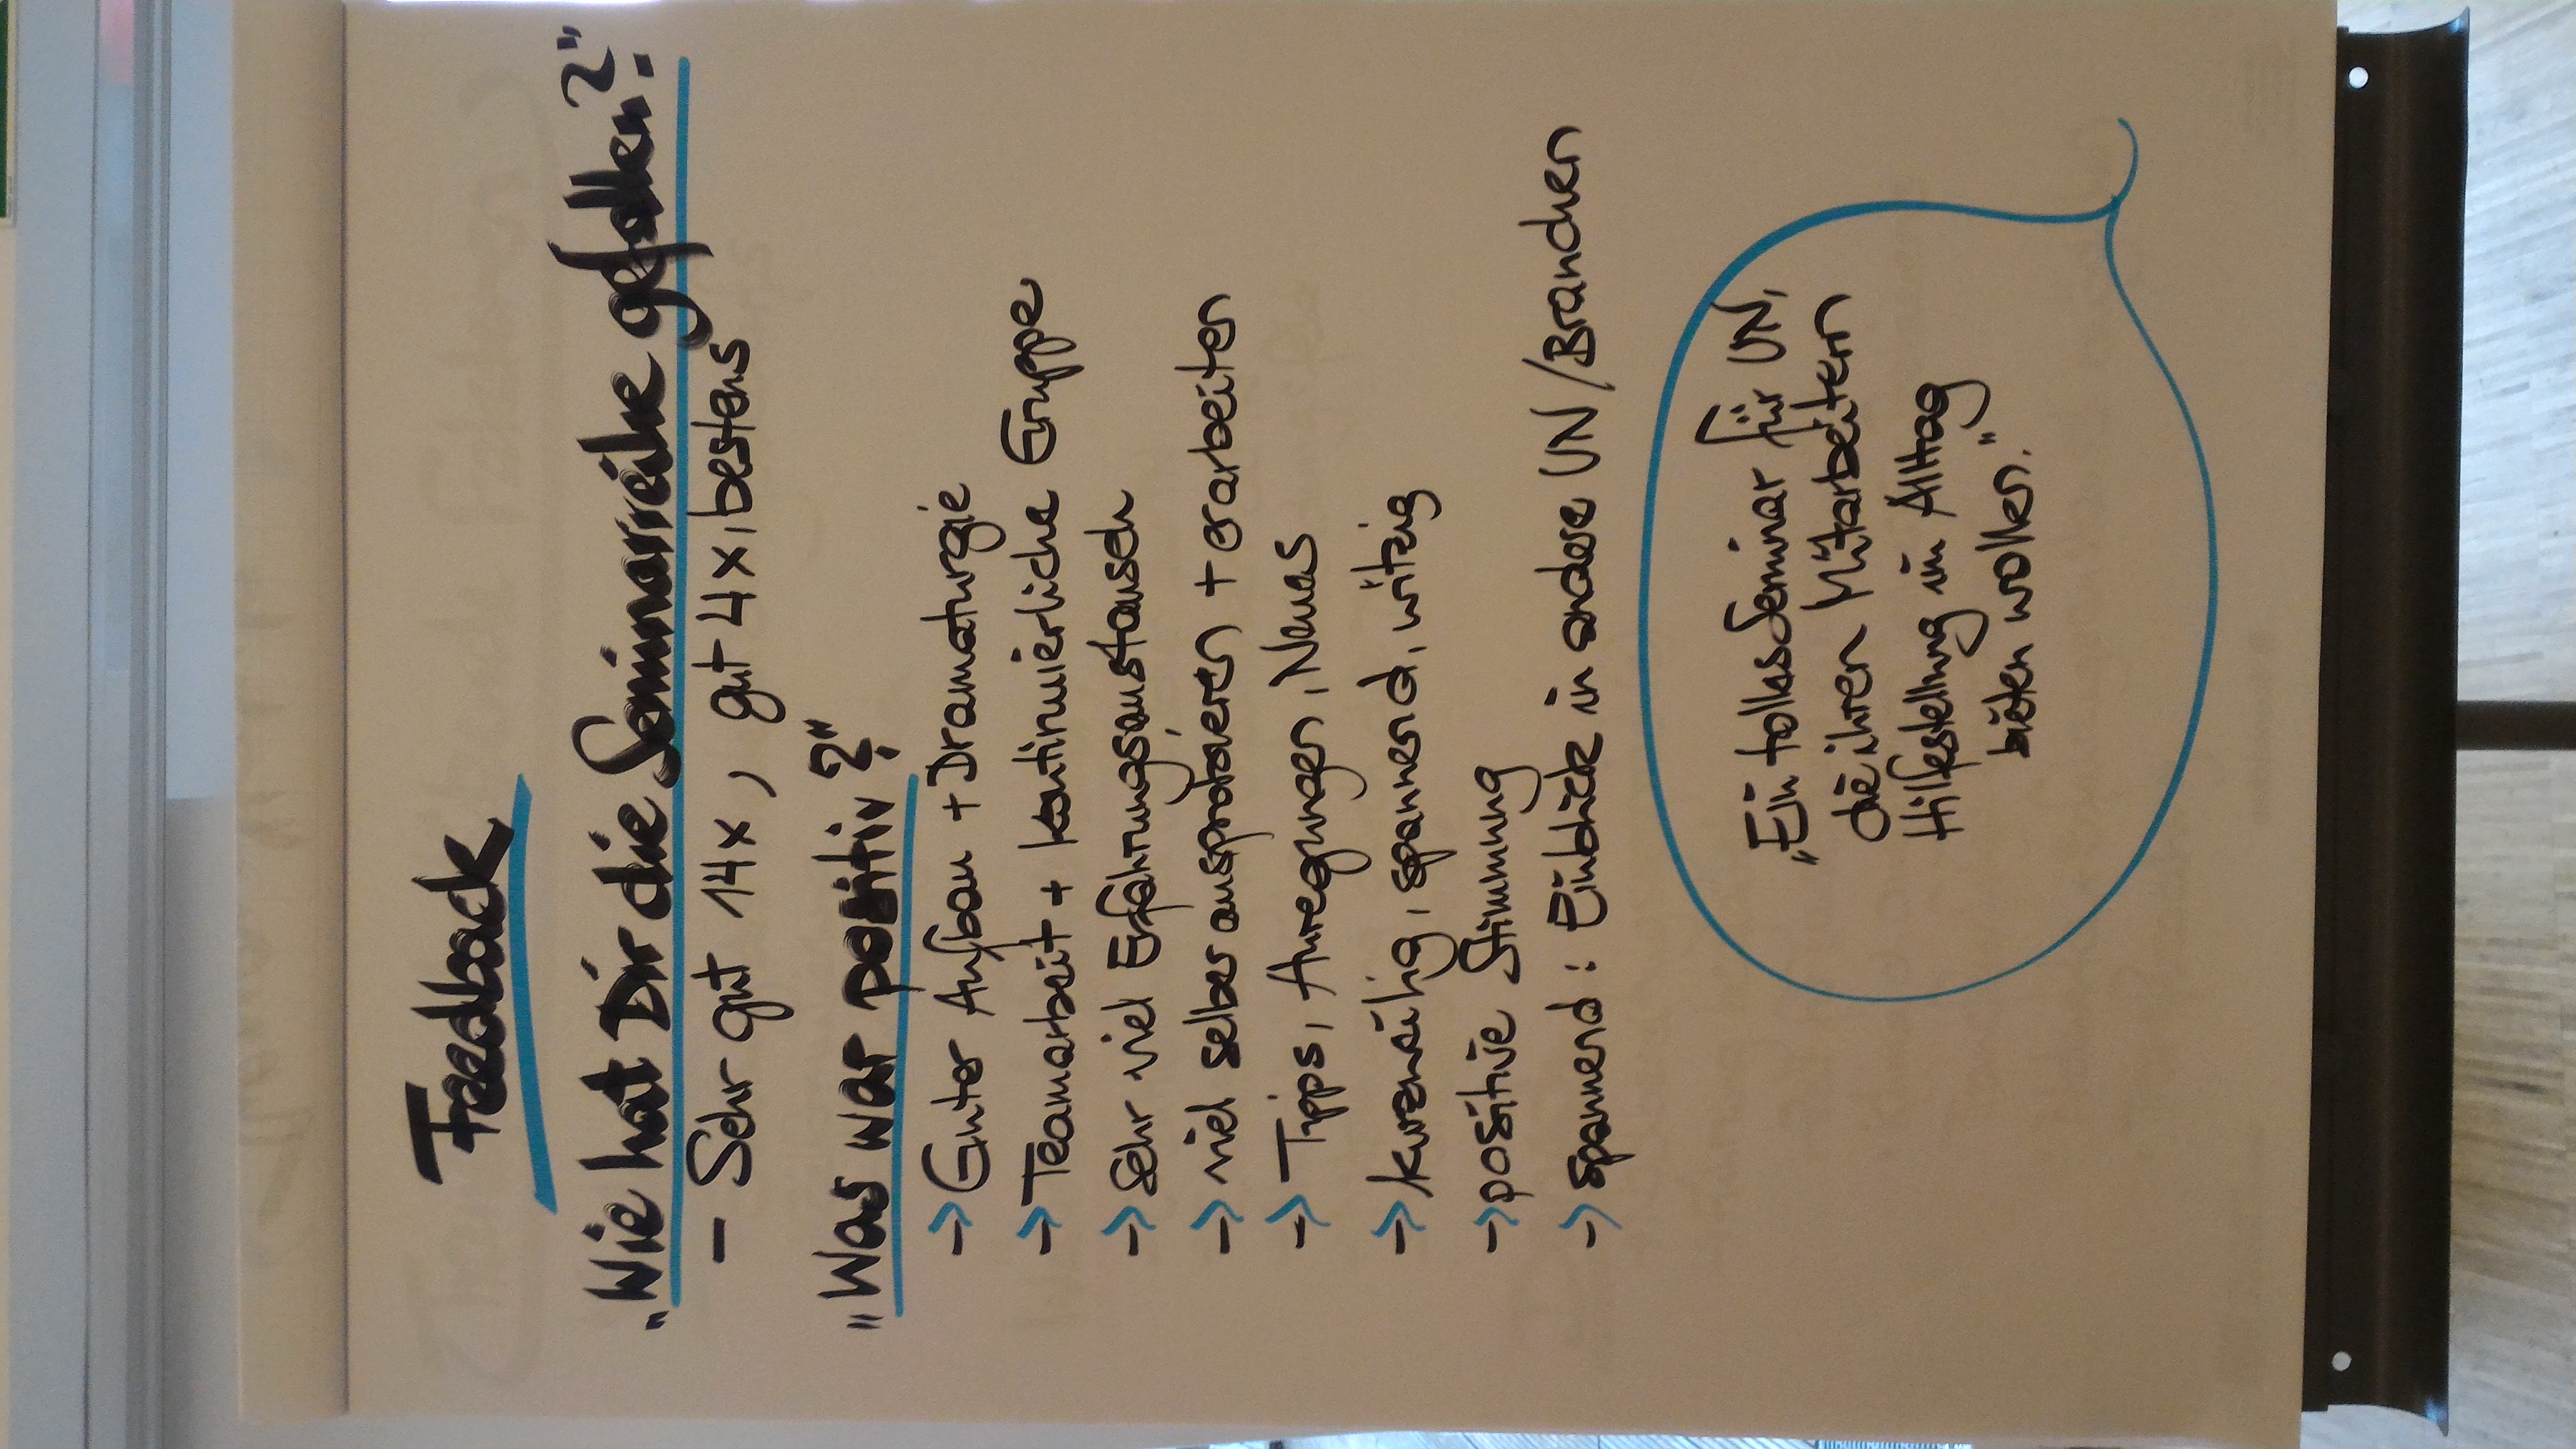 Feedback
„Wie hat Dir die Seminarreihe gefallen?"
- Sehr gut 14x, gut 4x, bestens
"Was war positiv?"
→ Guter Aufbau + Dramaturgie
→ Teamarbeit + kontinuierliche Gruppe
→ Sehr viel Erfahrungsaustausch
→ viel selber ausprobieren + erarbeiten
→ Tipps, Anregungen, Neues
→ kurzweilig, spannend, witzig
→ positive Stimmung
→ spannend: Einblick in andere UN/Branchen
„Ein tolles Seminar für UN,
die ihren Mitarbeitern
Hilfestellung im Alltag
bieten wollen."